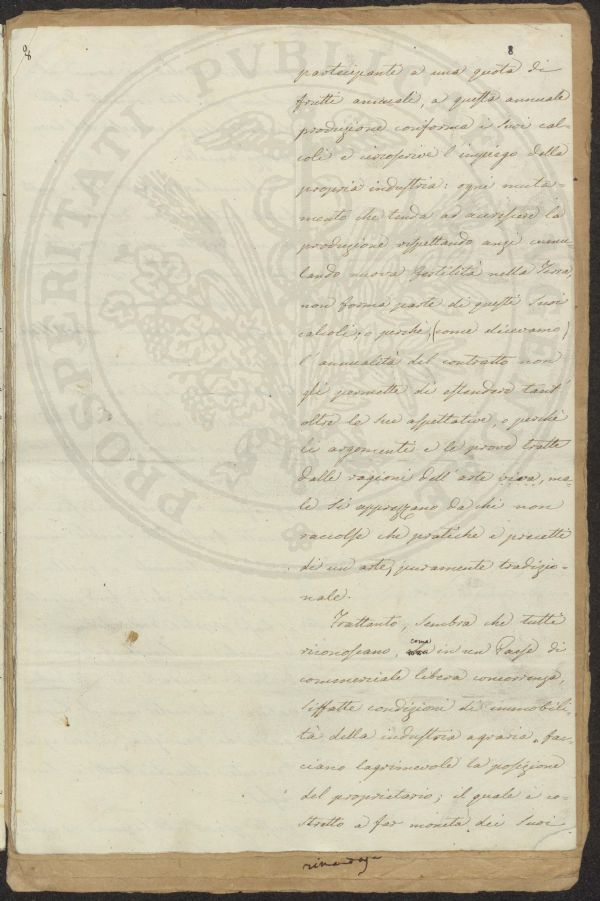 8
8
partecipante a una quota di
frutti annuali, a questa annuale
produzione conforma i suoi cal-
coli e circoscrive l'impiego della
propria industria: ogni muta-
mento che tenda ad accrescere la
produzione rispettando anzi cumu-
lando nuova fertilità nella Terra,
non forma parte di questi suoi
calcoli; o perchè, (come dicevamo)
l'annualità del contratto non
gli permette di estendere tant'
oltre le sue aspettative, o perchè
li argomenti e le prove tratte
dalle ragioni dell'arte viva, ma-
le si apprezzano da chi non
raccolse che pratiche e precetti
di un arte, puramente tradizio-
nale.
Frattanto, sembra che tutti
riconoscano, come in un Paese di
commerciale libera concorrenza,
siffatte condizioni di immobili-
tà della industria agraria, fac-
ciano lagrimevole la posizione
del proprietario; il quale è co-
stretto a far moneta dei suoi
PROSPERITATI PUBLICAE